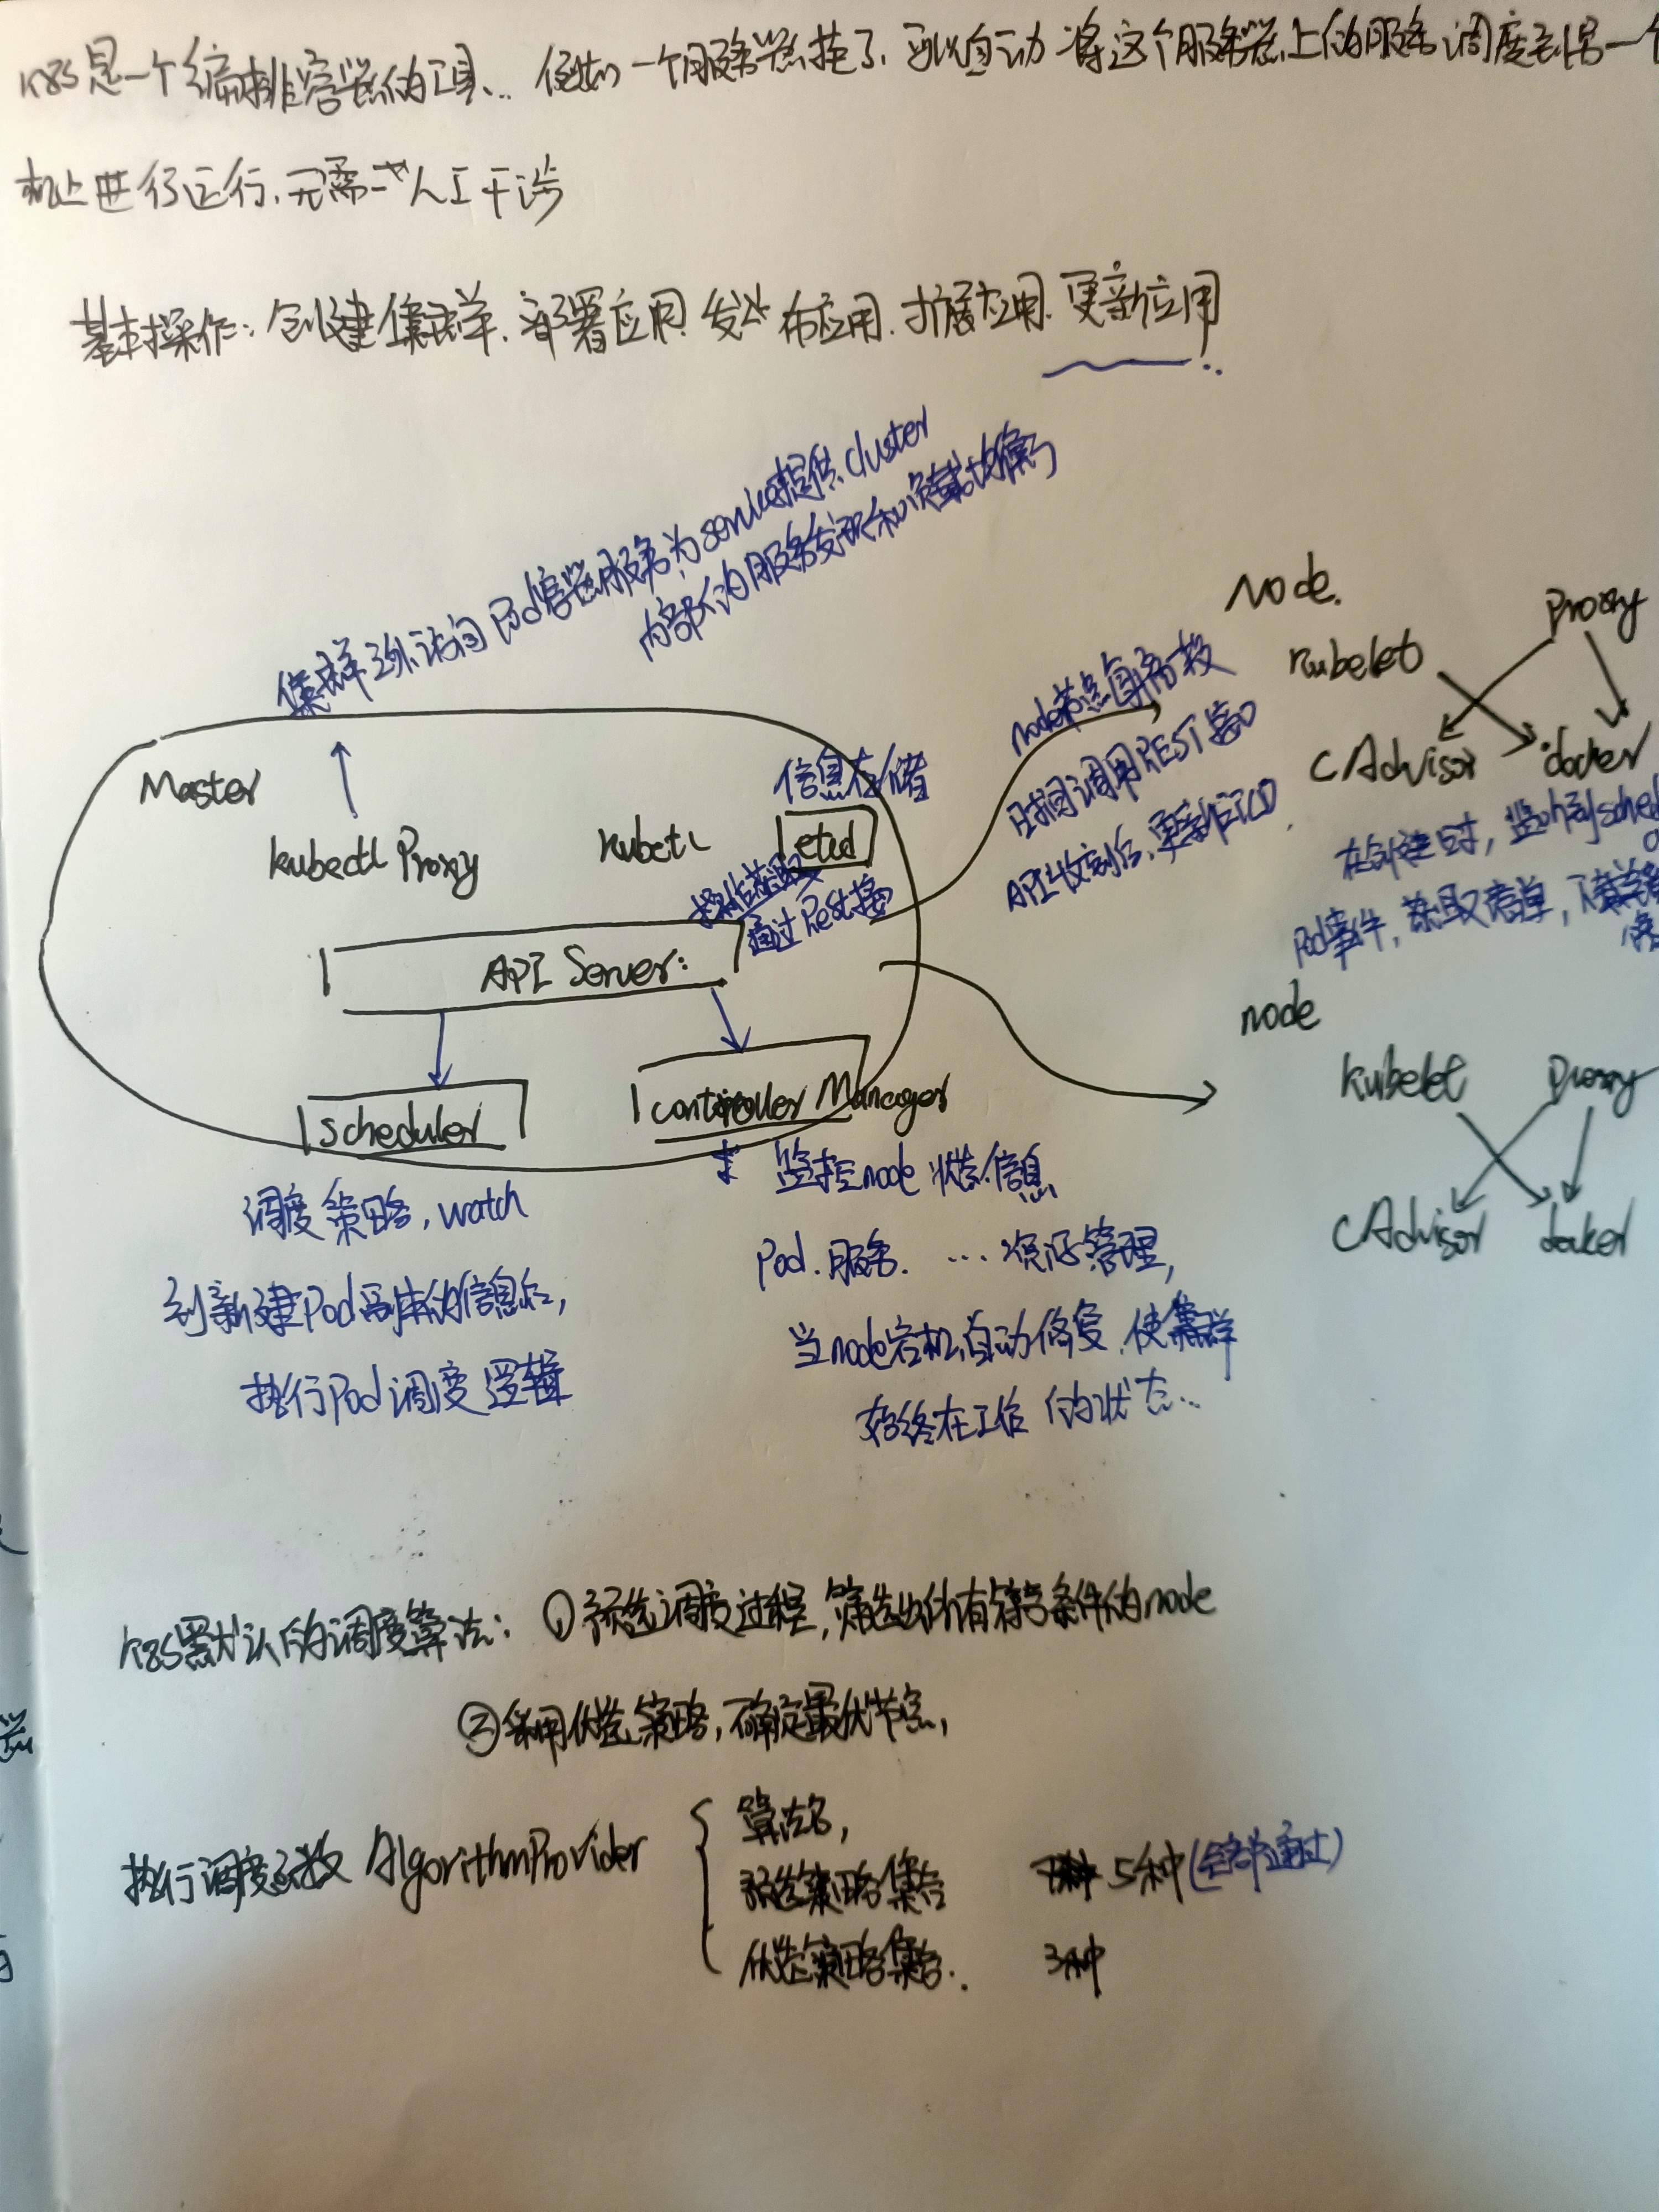 K8S是一个编排容器的工具、.. 例如一个服务器挂了、可以自动将这个服务器上的服务调度到另一个
机上进行运行,无需 人工干涉
基本操作:创建集群、部署应用、发 布应用、扩展应用、更新应用
集群 访问Pod容器服务为service提供cluster
内部的服务发现和负载均衡
Node.
Proxy
Kubelet
cAdvisor
docker
node节点每隔一段
时间调用REST接口
API收到后,更新ETCD
在创建时,监听到sched
Pod事件,获取清单,下载
Master
信息存储
kubectl Proxy
Kubctl
etcd
操作获取
通过Rest接
API Server:
node
kubelet
Proxy
cAdvisor
docker
scheduler
controller Manager
调度策略,watch
到新建Pod副本的信息后,
执行Pod调度逻辑
监控node状态信息
Pod.服务. …资源管理,
当node宕机,自动修复,使集群
始终在工作的状态…
K8S默认的调度算法: ①预选调度过程,筛选出所有符合条件的node
②采用优选策略,确定最优节点,
执行调度函数 AlgorithmProvider
算法名,
预选策略集合 5种(全部通过)
优选策略集合. 3种